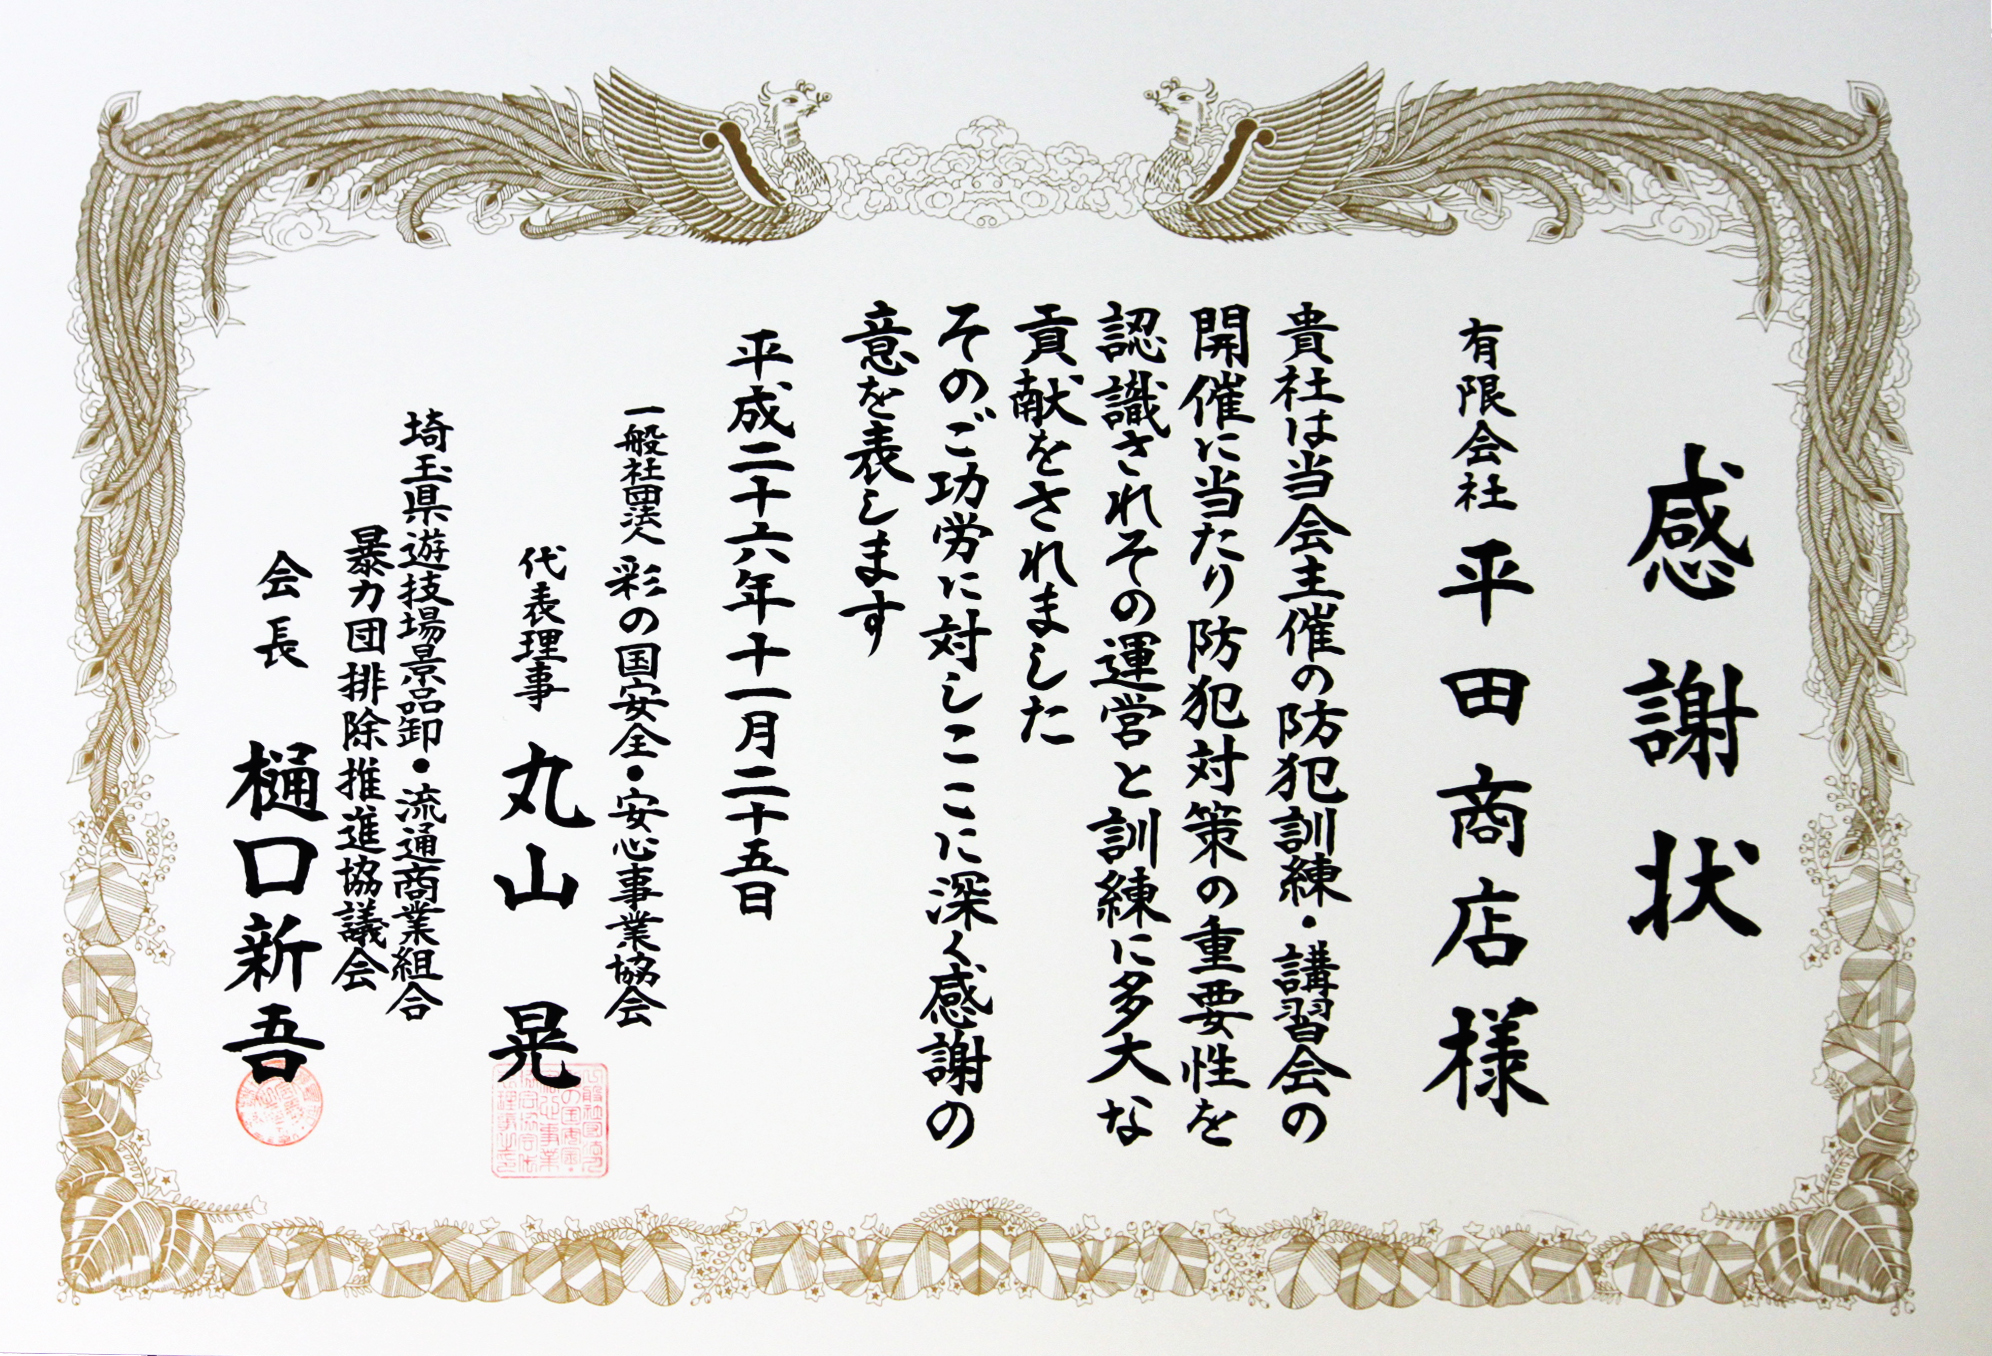 感謝状
有限会社 平田商店様
貴社は当会主催の防犯訓練・講習会の
開催に当たり防犯対策の重要性を
認識されその運営と訓練に多大な
貢献をされました
そのご功労に対しここに深く感謝の
意を表します
平成二十六年十一月二十五日
一般社団法人 彩の国安全・安心事業協会
代表理事 丸山 晃
埼玉県遊技場景品卸・流通商業組合
暴力団排除推進協議会
会長 樋口新吾